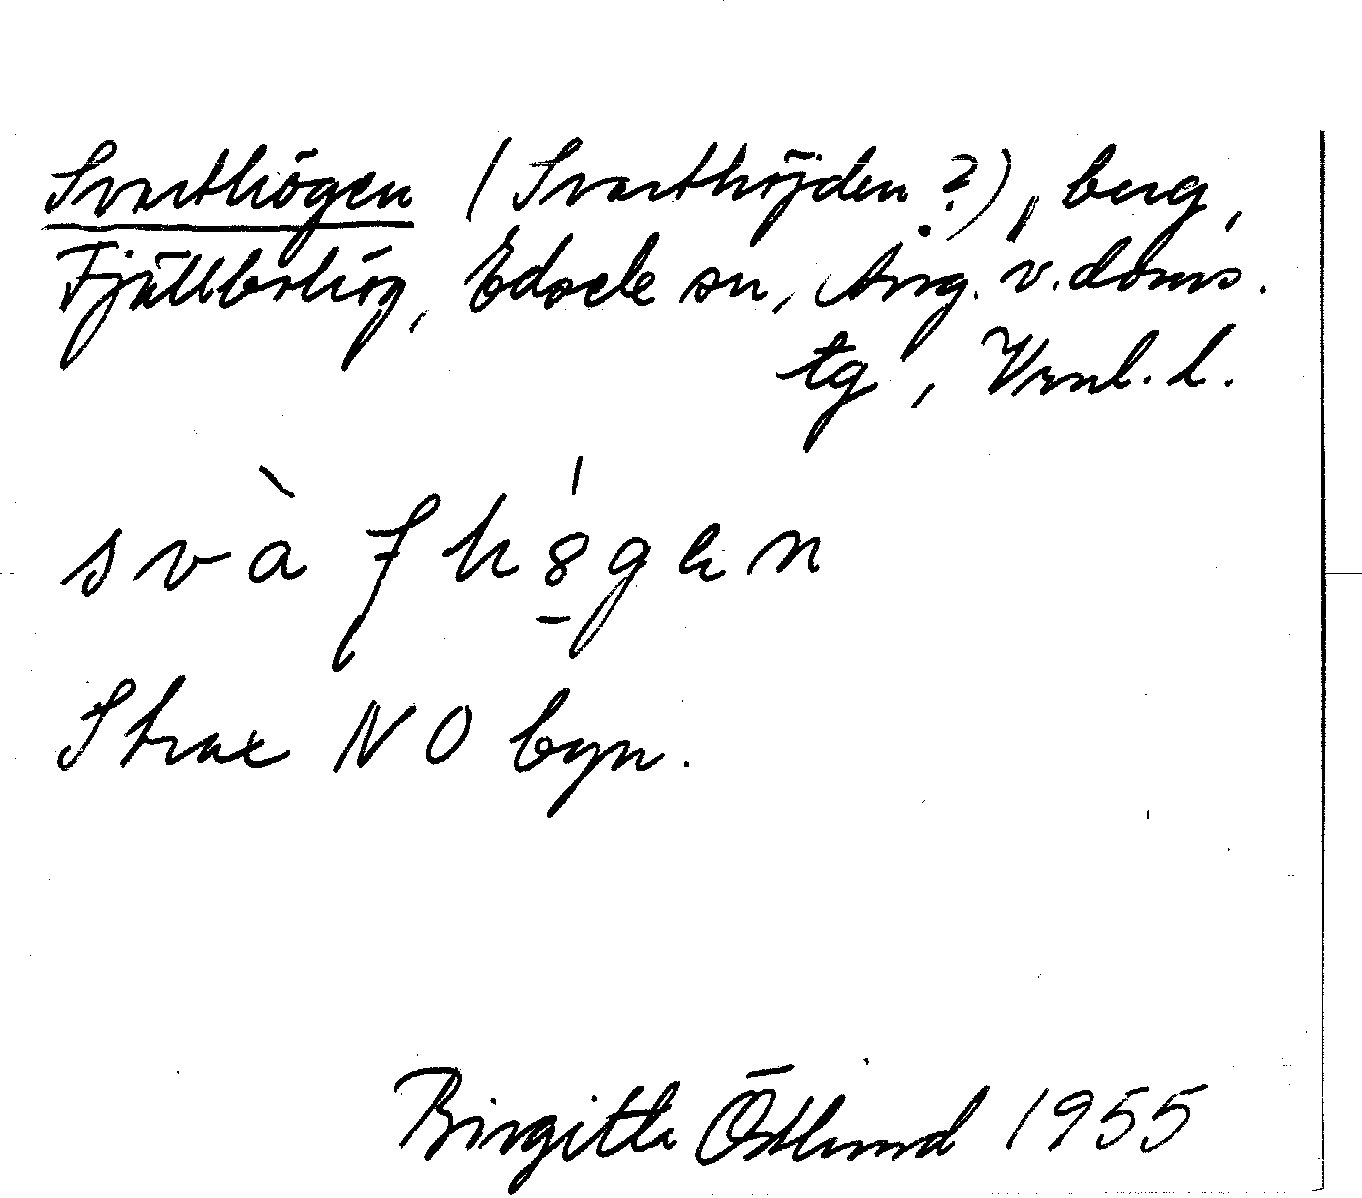 Svarthögen (Svarthöjden?), berg,
Fjällbohög, Edsele sn, Ång. v. doms.
tg, Vrnl. l.
svàʃhö́gen
Strax NO byn.
Birgitta Östlund 1955